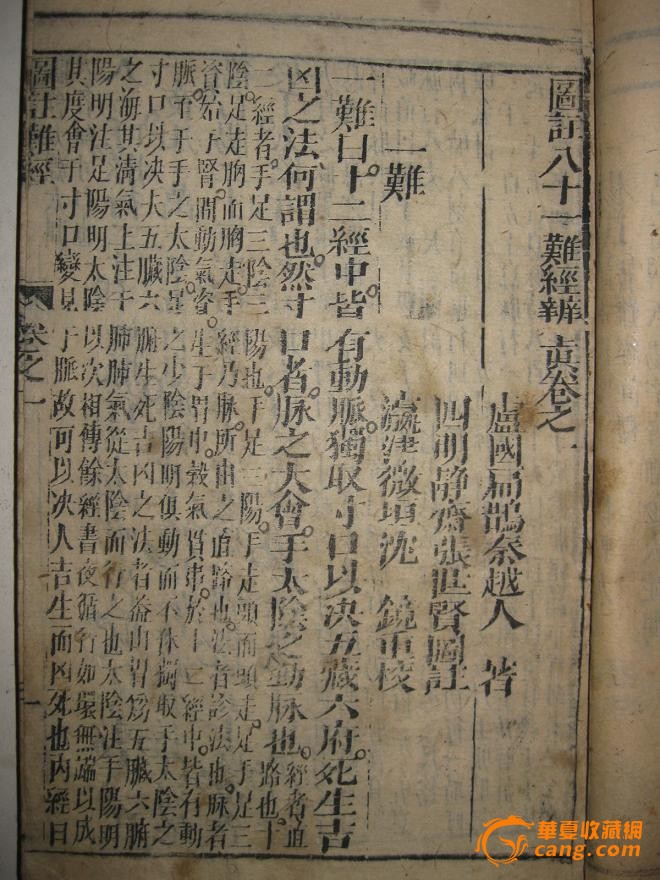 圖註八十一難經辨真卷之一
盧國扁鵲秦越人 著
四明靜齋張世賢圖註
瀛津微垣沈 鏡重校
一難
一難曰。十二經中皆有動脈。獨取寸口以決五藏六府。死生吉
凶之法何謂也。然寸口者。脈之大會。手太陰之動脈也。經者直
路也。十
二經者。手足三陰三陽也。手足三陽。手走頭而頭走足。手足三
陰。足走胸而胸走手。經乃脈所由之直路也。法者診法也。脈者
資始于腎間動氣。資生于胃中。穀氣貫串於十二經中。皆有動
脈。至于手之太陰。足之少陰陽明俱動而不休。獨取手太陰之
寸口以決大五臟六腑生死吉凶之法者蓋由胃為五臟六腑
之海其清氣上注于肺肺氣從太陰而行之也太陰注手陽明
陽明注足陽明太陰以次相傳餘經晝夜循行如環無端以成
其度會于寸口變見于脈故可以決人吉生而凶死也內經曰
圖註難經 卷之一 一
華夏收藏網
cang.com